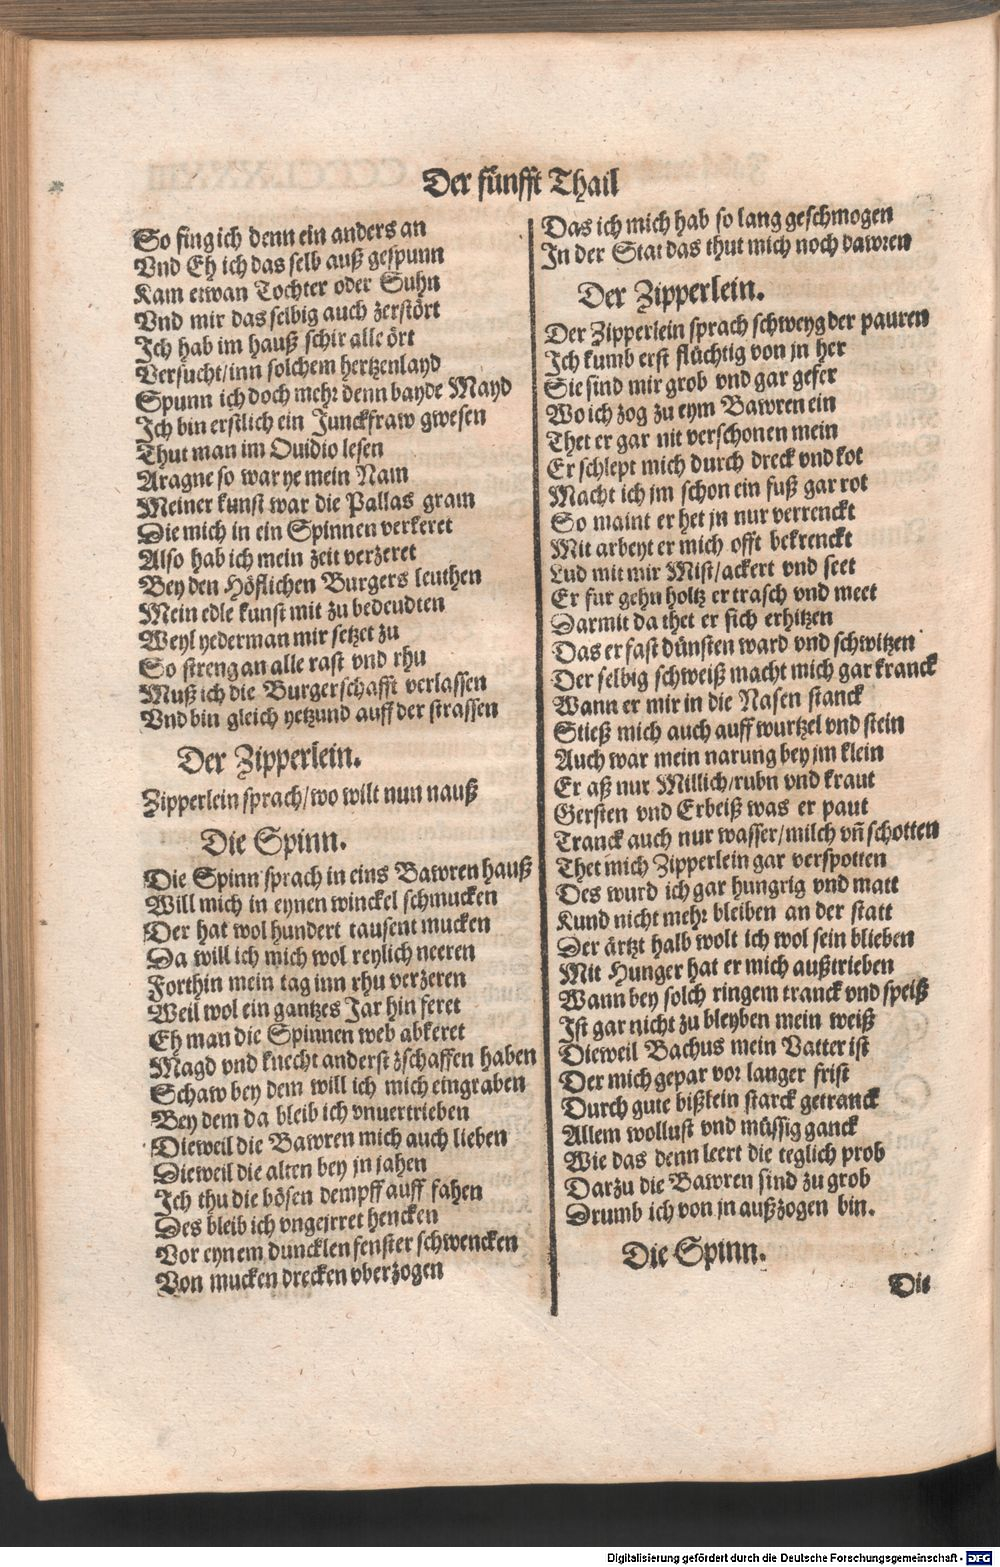 Der fünfft Thail
So fing ich denn ein anders an
Vnd Eh ich das selb auß gespunn
Kam etwan Tochter oder Suhn
Vnd mir das selbig auch zerstört
Ich hab im hauß schir alle ört
Versucht/inn solchem hertzenlayd
Spunn ich doch mehr denn bayde Mayd
Ich bin erstlich ein Junckfraw gwesen
Thut man im Ouidio lesen
Aragne so war ye mein Nam
Meiner kunst war die Pallas gram
Die mich in ein Spinnen verkeret
Also hab ich mein zeit verzeret
Bey den Höflichen Burgers leuthen
Mein edle kunst mit zu bedeudten
Weyl yederman mir setzet zu
So streng an alle rast vnd rhu
Muß ich die Burgerschafft verlassen
Vnd bin gleich yetzund auff der strassen
Der Zipperlein.
Zipperlein sprach/wo wilt nun nauß
Die Spinn.
Die Spinn sprach in eins Bawren hauß
Will mich in eynen winckel schmucken
Der hat wol hundert tausent mucken
Da will ich mich wol reylich neeren
Forthin mein tag inn rhu verzeren
Weil wol ein gantzes Jar hin feret
Eh man die Spinnen web abkeret
Magd vnd knecht anderst zschaffen haben
Schaw bey dem will ich mich eingraben
Bey dem da bleib ich vnuertrieben
Dieweil die Bawren mich auch lieben
Dieweil die alten bey jn jahen
Ich thu die bösen dempff auff fahen
Des bleib ich vngejrret hencken
Vor eynem duncklen fenster schwencken
Von mucken drecken vberzogen
Das ich mich hab so lang geschmogen
In der Stat das thut mich noch dawren
Der Zipperlein.
Der Zipperlein sprach schweyg der pauren
Ich kumb erst flüchtig von jn her
Sie sind mir grob vnd gar gefer
Wo ich zog zu eym Bawren ein
Thet er gar nit verschonen mein
Er schlept mich durch dreck vnd kot
Macht ich jm schon ein fuß gar rot
So maint er het jn nur verrenckt
Mit arbeyt er mich offt bekrenckt
Lud mit mir Mist/ackert vnd seet
Er fur gehn holtz er trasch vnd meet
Darmit da thet er sich erhitzen
Das er fast dünsten ward vnd schwitzen
Der selbig schweiß macht mich gar kranck
Wann er mir in die Nasen stanck
Stieß mich auch auff wurtzel vnd stein
Auch war mein narung bey jm klein
Er aß nur Millich/rubn vnd kraut
Gersten vnd Erbeiß was er paut
Tranck auch nur wasser/milch vñ schotten
Thet mich Zipperlein gar verspotten
Des wurd ich gar hungrig vnd matt
Kund nicht mehr bleiben an der statt
Der ärtzt halb wolt ich wol sein blieben
Mit Hunger hat er mich außtrieben
Wann bey solch ringem tranck vnd speiß
Ist gar nicht zu bleyben mein weiß
Dieweil Bachus mein Vatter ist
Der mich gepar vor langer frist
Durch gute bißlein starck getranck
Allem wollust vnd müssig ganck
Wie das denn leert die teglich prob
Darzu die Bawren sind zu grob
Drumb ich von jn außzogen bin.
Die Spinn.
Die
Digitalisierung gefördert durch die Deutsche Forschungsgemeinschaft - DFG